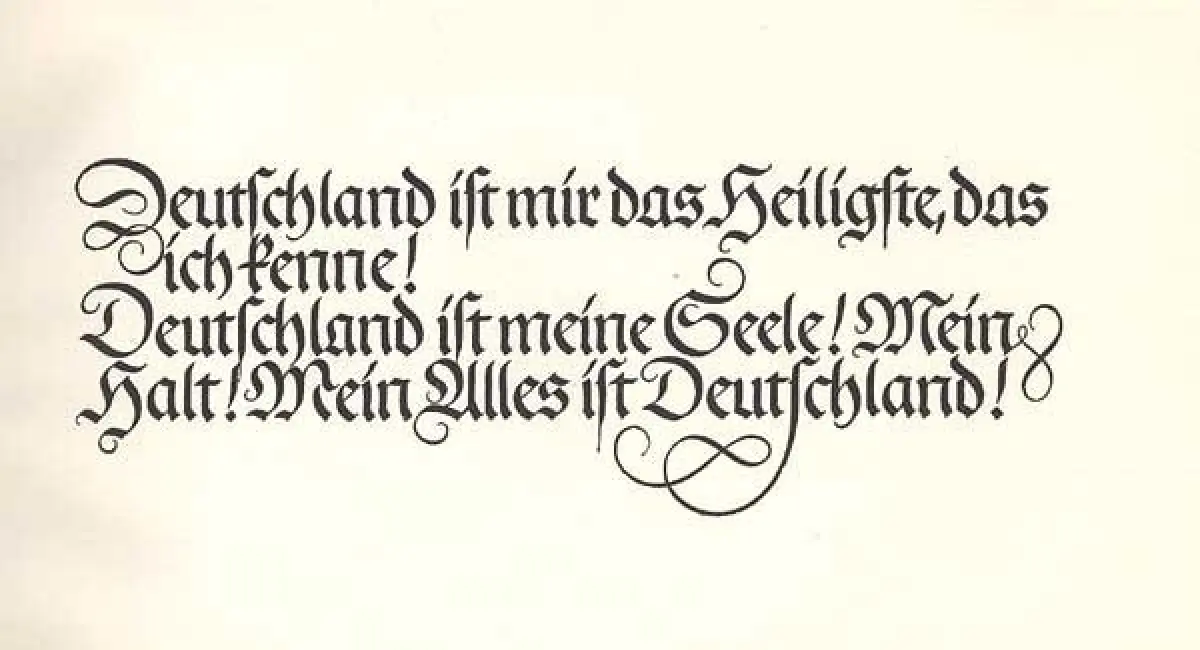 Deutſchland iſt mir das Heiligſte, das
ich kenne!
Deutſchland iſt meine Seele! Mein
Halt! Mein Alles iſt Deutſchland!